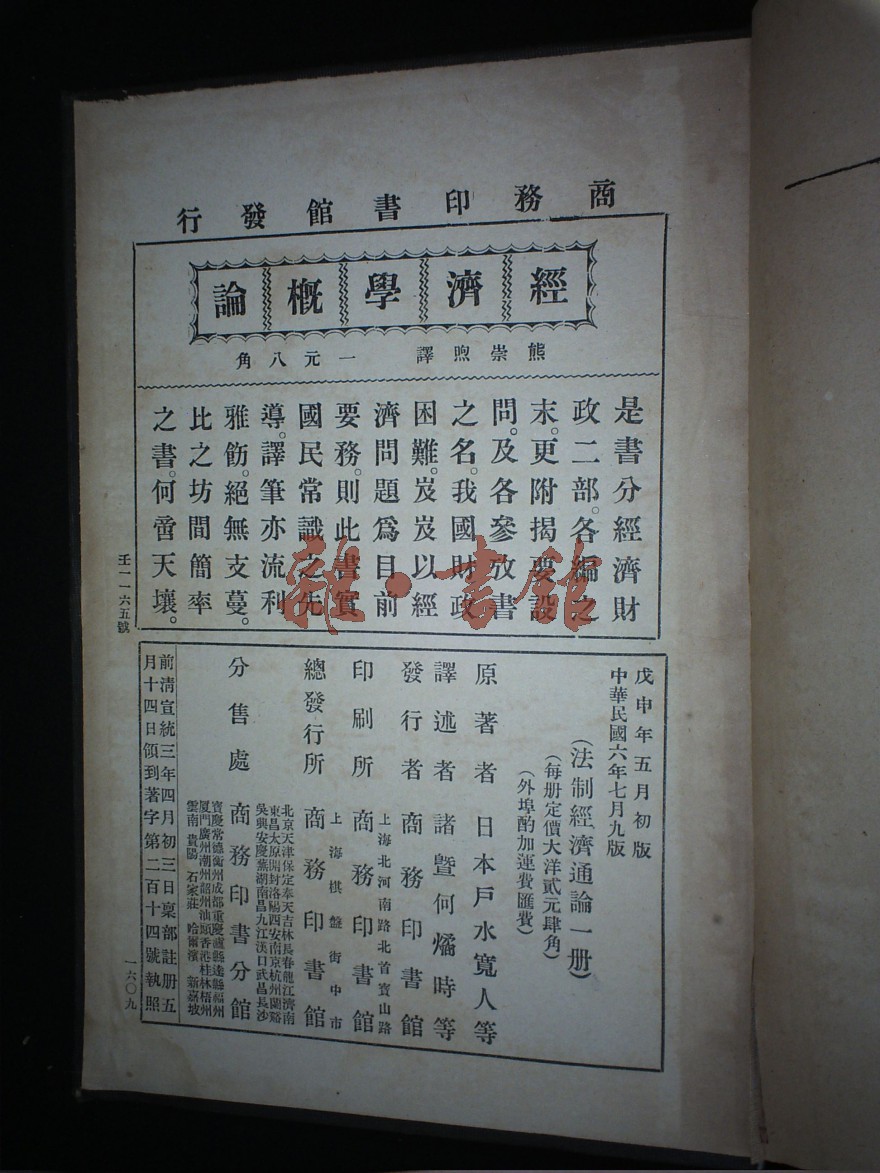 商務印書館發行
經濟學概論
熊崇煦譯　一元八角
是書分經濟財
政二部。各編之
末。更附揭要設
問。及各參攷書
之名。我國財政
困難。岌岌以經
濟問題爲目前
要務。則此書實
國民常識之先
導。譯筆亦流利
雅飭。絕無支蔓。
比之坊間簡率
之書。何啻天壤。
壬一一六五號
戊申年五月初版
中華民國六年七月九版
(法制經濟通論一册)
(每册定價大洋貳元肆角)
(外埠酌加運費匯費)
原著者　日本戶水寬人等
譯述者　諸暨何燏時等
發行者　商務印書館
上海北河南路北首寶山路
印刷所　商務印書館
上海棋盤街中市
總發行所　商務印書館
北京天津保定奉天吉林長春龍江濟南
東昌太原開封洛陽西安南京杭州蘭谿
吳興安慶蕪湖南昌九江漢口武昌長沙
分售處　商務印書分館
寶慶常德衡州成都重慶瀘縣達縣福州
厦門廣州潮州韶州汕頭香港桂林梧州
雲南　貴陽　石家莊　哈爾濱　新嘉坡
前淸宣統三年四月初三日稟部註册五
月十四日領到著字第二百十四號執照
一六〇九
雜·書館